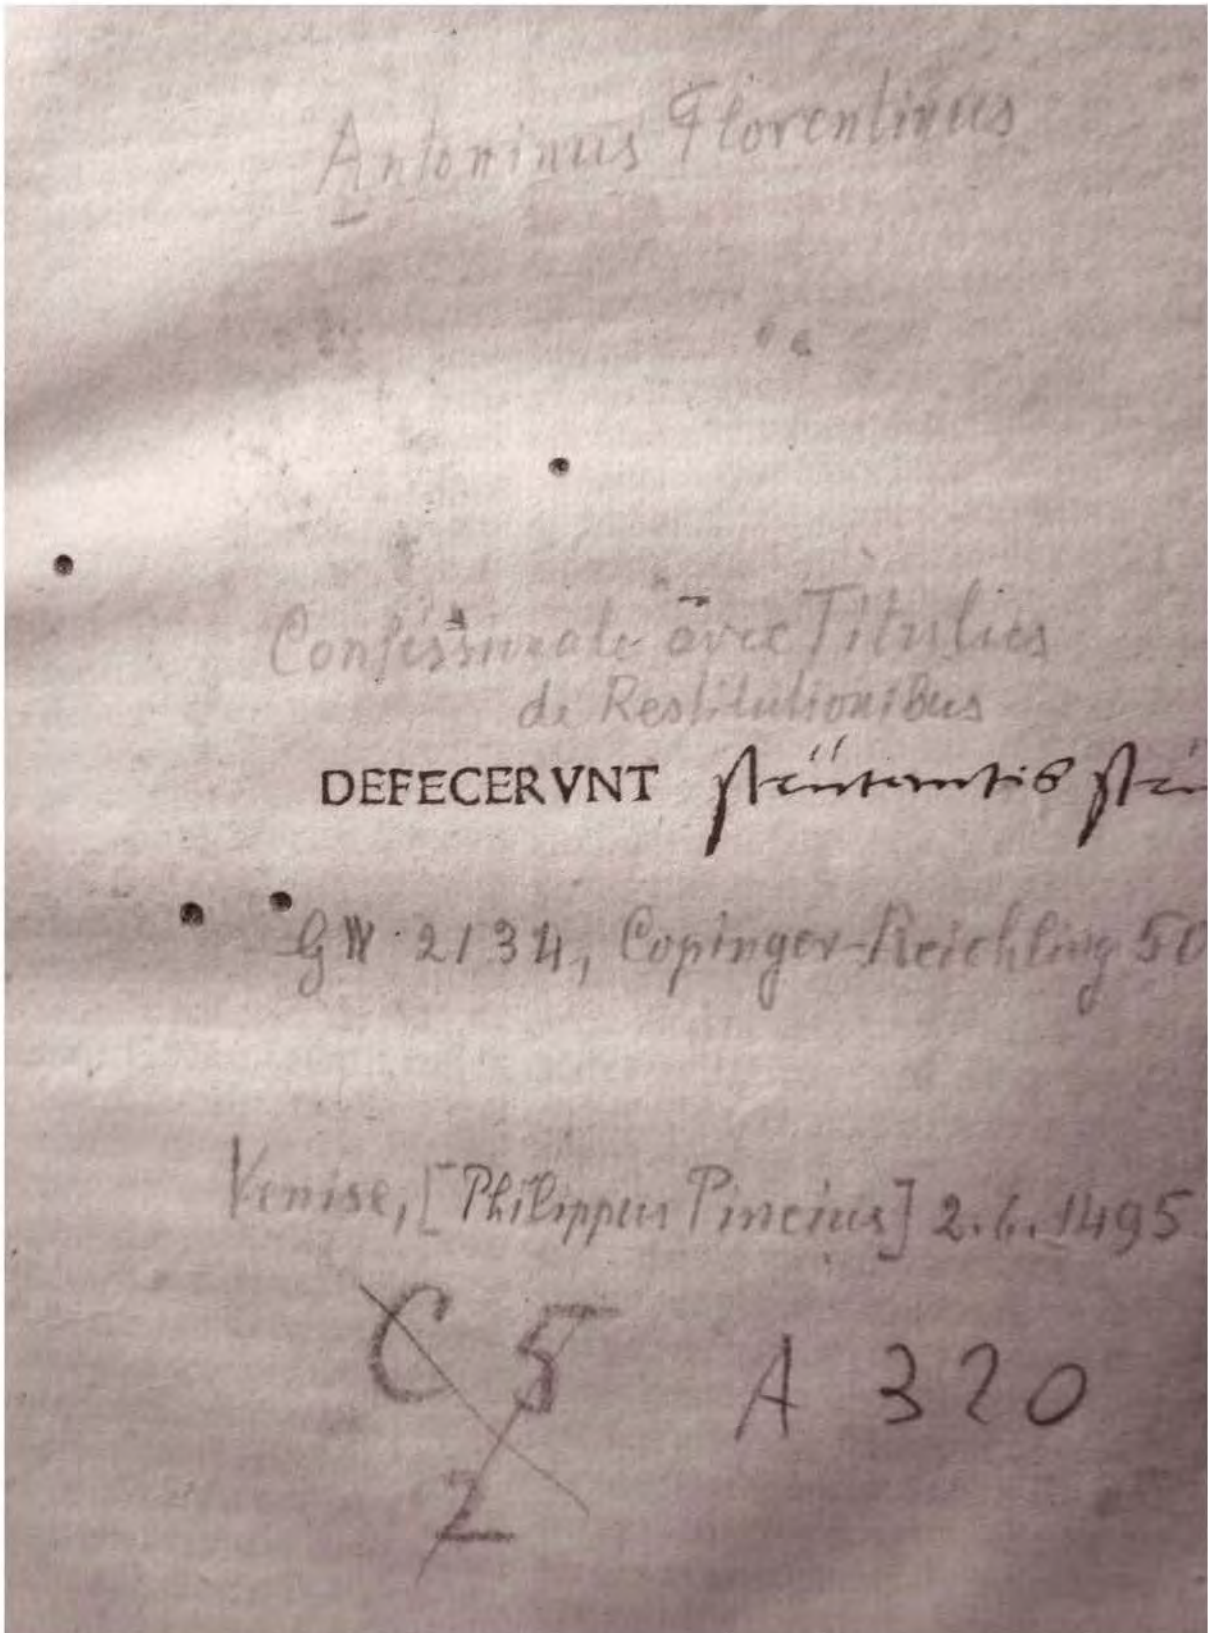 Antoninus Florentinus
Confessionale avec Titulus
de Restitutionibus
DEFECERVNT
GW 2134, Copinger-Reichling 50
Venise, [Philippus Pincius] 2.6.1495
C 5 A 320
2